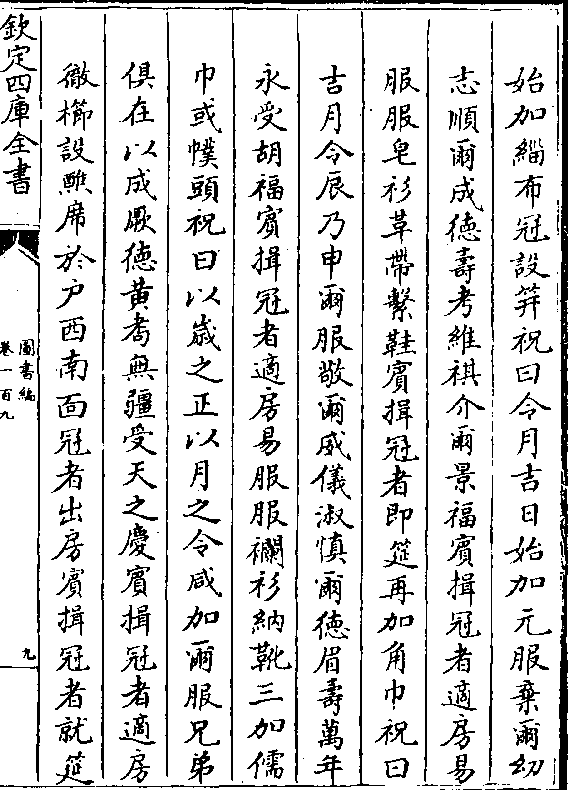 始加緇布冠設筓祝曰令月吉日始加元服棄爾幼
志順爾成徳壽考維祺介爾景福賓揖冠者適房易
服服皂衫革帶繫鞋賓揖冠者即筵再加角巾祝曰
吉月令辰乃申爾服敬爾威儀淑慎爾徳眉壽萬年
永受胡福賓揖冠者適房易服服襴衫納靴三加儒
巾或幞頭祝曰以歲之正以月之令咸加爾服兄弟
俱在以成厥徳黄耉無疆受天之慶賓揖冠者適房
徹櫛設醮席於户西南面冠者出房賓揖冠者就筵
欽定四庫全書
圖書編
卷一百九
九